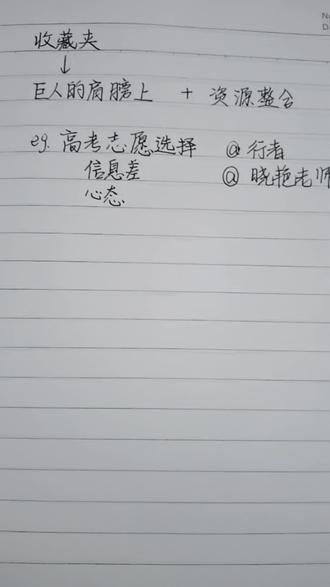 收藏夹
↓
巨人的肩膀上 + 资源整合
eg. 高考志愿选择 @行者
信息差 @晓艳老师
心态